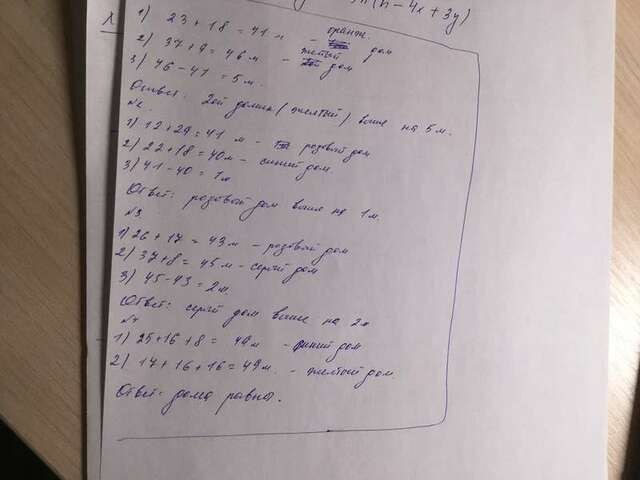 (n - 4x + 3y)
1.
1) 23 + 18 = 41 м - оранж. дом
2) 37 + 9 = 46 м - желтый дом
3) 46 - 41 = 5 м.
Ответ: 2ой домик (желтый) выше на 5 м.
№2
1) 12 + 29 = 41 м - розовый дом
2) 22 + 18 = 40 м - синий дом.
3) 41 - 40 = 1 м
Ответ: розовый дом выше на 1 м.
№3
1) 26 + 17 = 43 м - розовый дом
2) 37 + 8 = 45 м - серый дом
3) 45 - 43 = 2 м.
Ответ: серый дом выше на 2 м
№4
1) 25 + 16 + 8 = 49 м - синий дом
2) 17 + 16 + 16 = 49 м. - желтый дом.
Ответ: дома равны.